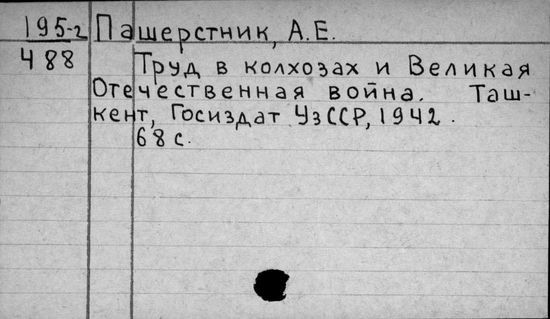 195-2 Пашерстник, А.Е.
488 Труд в колхозах и Великая
Отечественная война. Таш-
кент, Госиздат УзССР, 1942.
68 с.